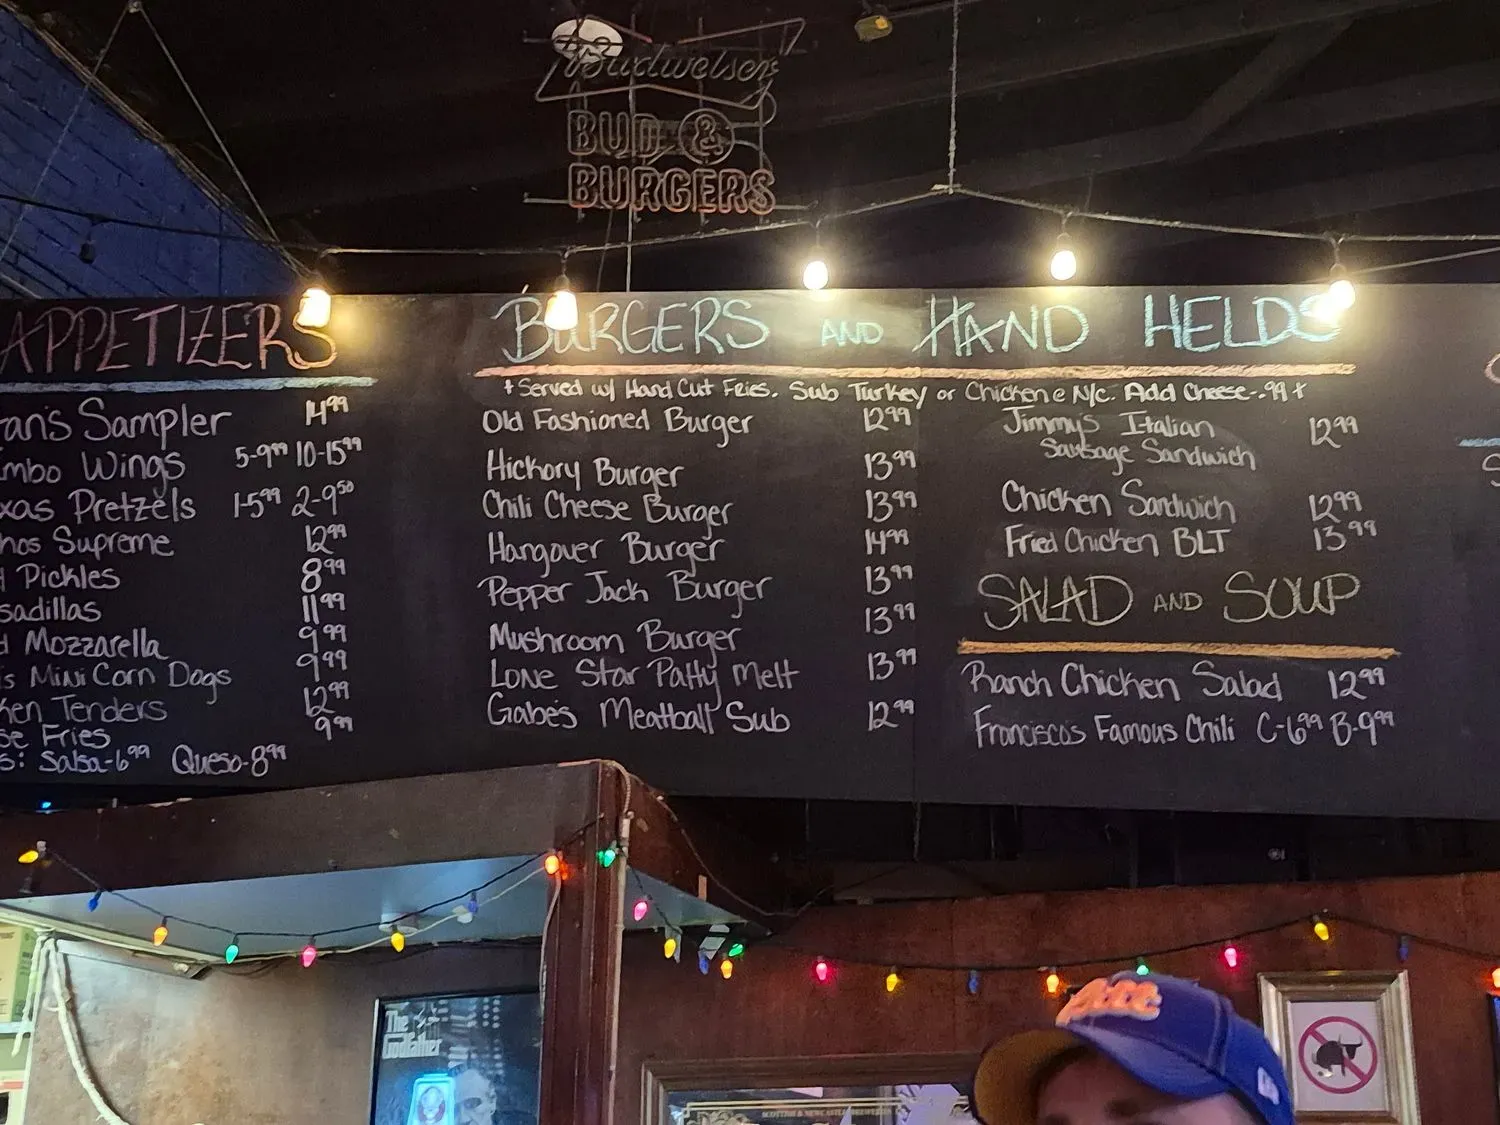 Budweiser
BUD &
BURGERS
APPETIZERS
Sampler 14.99
Wings 5-9.99 10-15.99
Pretzels 1-5.99 2-9.50
Supreme 12.99
Pickles 8.99
11.99
Mozzarella 9.99
Mini Corn Dogs 9.99
Tenders 12.99
Fries 9.99
Salsa-6.99 Queso-8.99
BURGERS AND HAND HELDS
*Served w/ Hand Cut Fries. Sub Turkey or Chicken @ N/c. Add Cheese-.99*
Old Fashioned Burger 12.99
Hickory Burger 13.99
Chili Cheese Burger 13.99
Hangover Burger 14.99
Pepper Jack Burger 13.99
Mushroom Burger 13.99
Lone Star Patty Melt 13.99
Gabe's Meatball Sub 12.99
Jimmy's Italian 12.99
Sausage Sandwich
Chicken Sandwich 12.99
Fried Chicken BLT 13.99
SALAD AND SOUP
Ranch Chicken Salad 12.99
Francisco's Famous Chili C-6.99 B-9.99
The
Godfather
SCOTTISH & NEWCASTLE BREWERIES